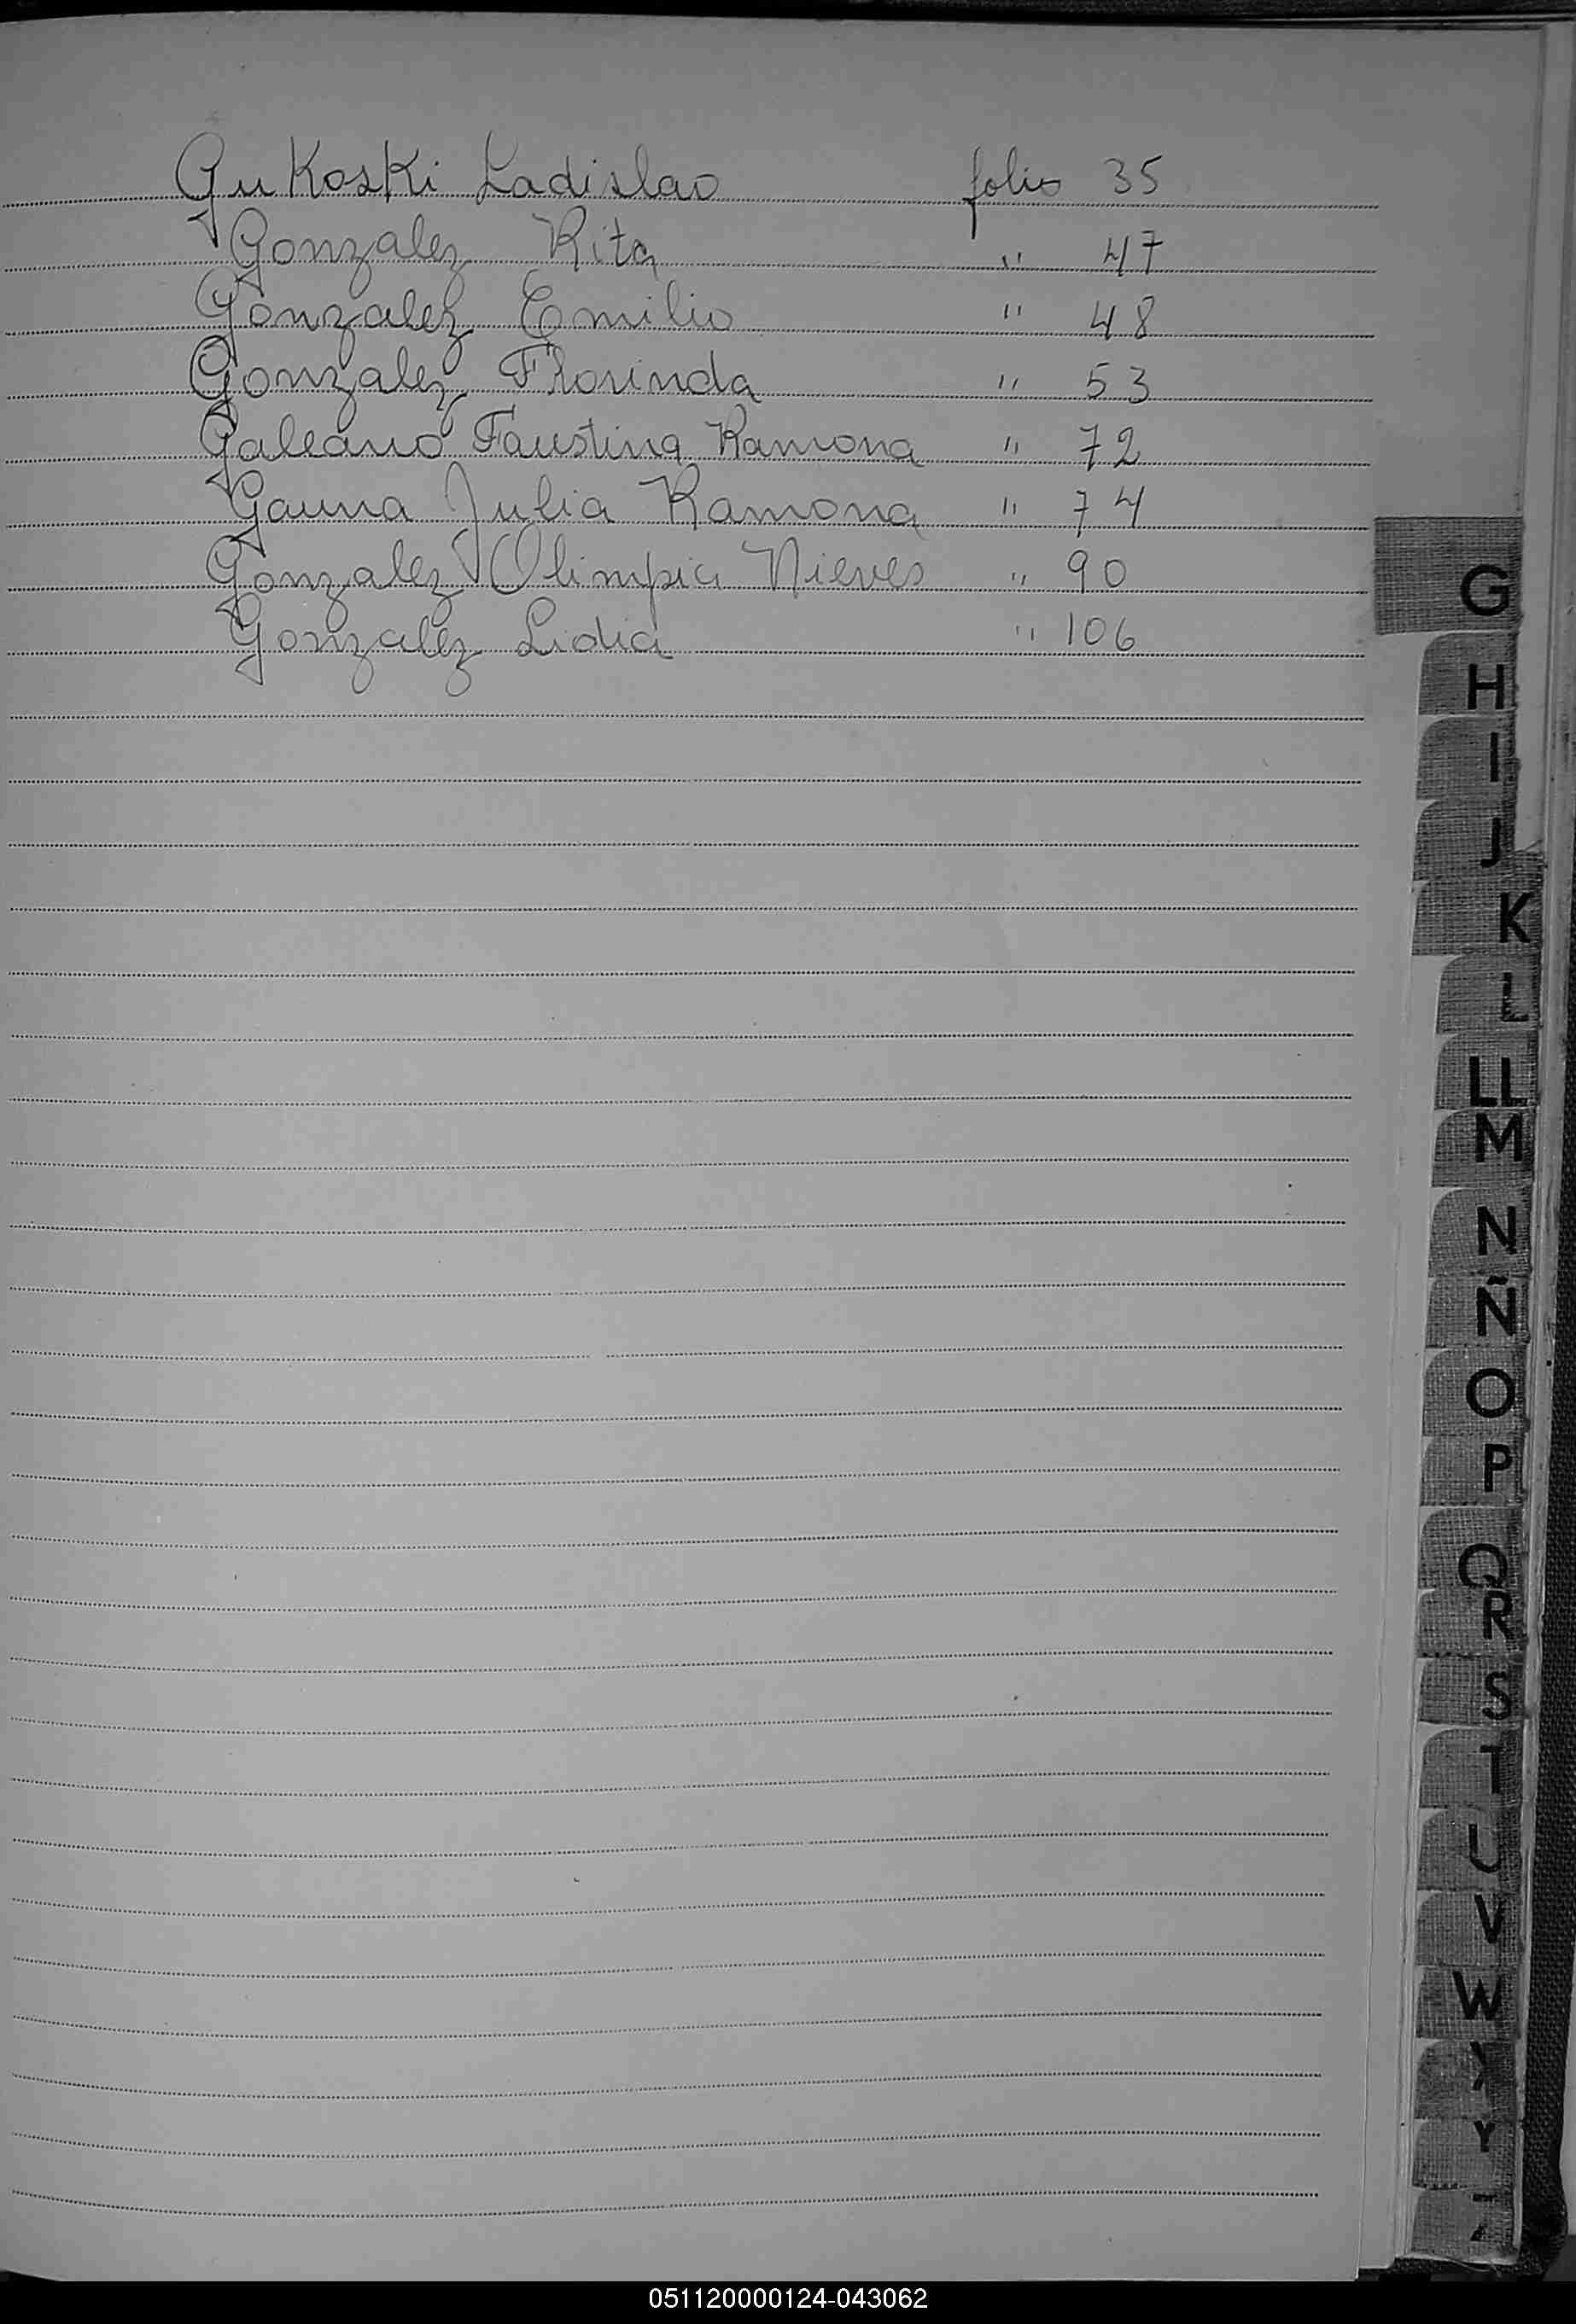 GuKosKi Ladislao folio 35
Gonzalez Rita " 47
Gonzalez Emilio " 48
Gonzalez Florinda " 53
Galeano Faustina Ramona " 72
Gauna Julia Ramona " 74
Gonzalez Olimpia Nieves " 90
Gonzalez Lidia " 106
G
H
I
J
K
L
LL
M
N
Ñ
O
P
Q
R
S
T
U
V
W
X
Y
Z
051120000124-043062